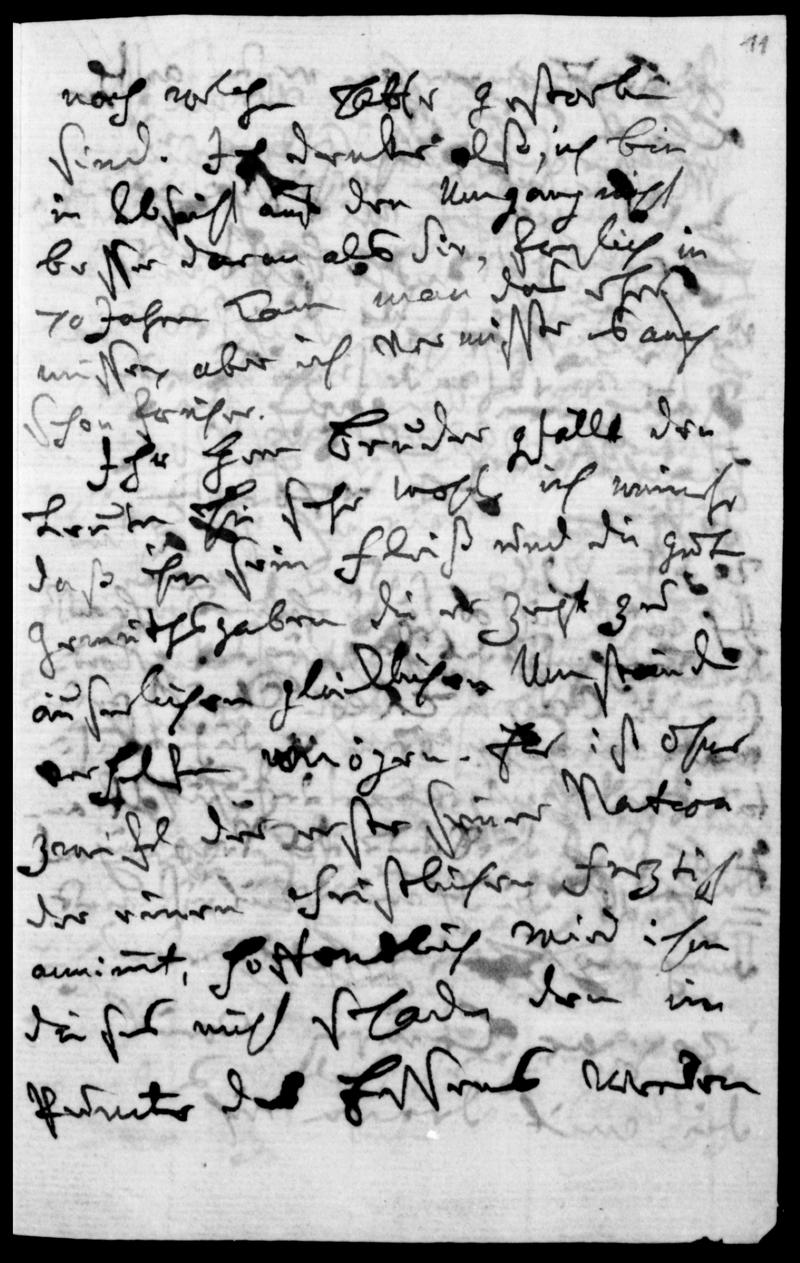 11
noch vor ihrem Vatter gestorben
sind. Ich dencke also, ich bin
in Absicht auf den Umgang nicht
besser daran als Sie, freylich in
70 Jahren kan man das eher
missen, aber ich vermisste es auch
schon früher.
Ihr Herr Bruder gefällt den
Leuten hie sehr wohl, ich wünsche
daß ihn sein Fleiß und die gute
Gemüthsgaben die er zeigt zu
äuserlichen glücklichen Umständen
verhelfen mögen. Er ist ohne
zweifel der erste seiner Nation
der einen christlichen
annimt, hoffendlich wird ihm
dieses nicht schaden denn im
Puncte des Essens werden